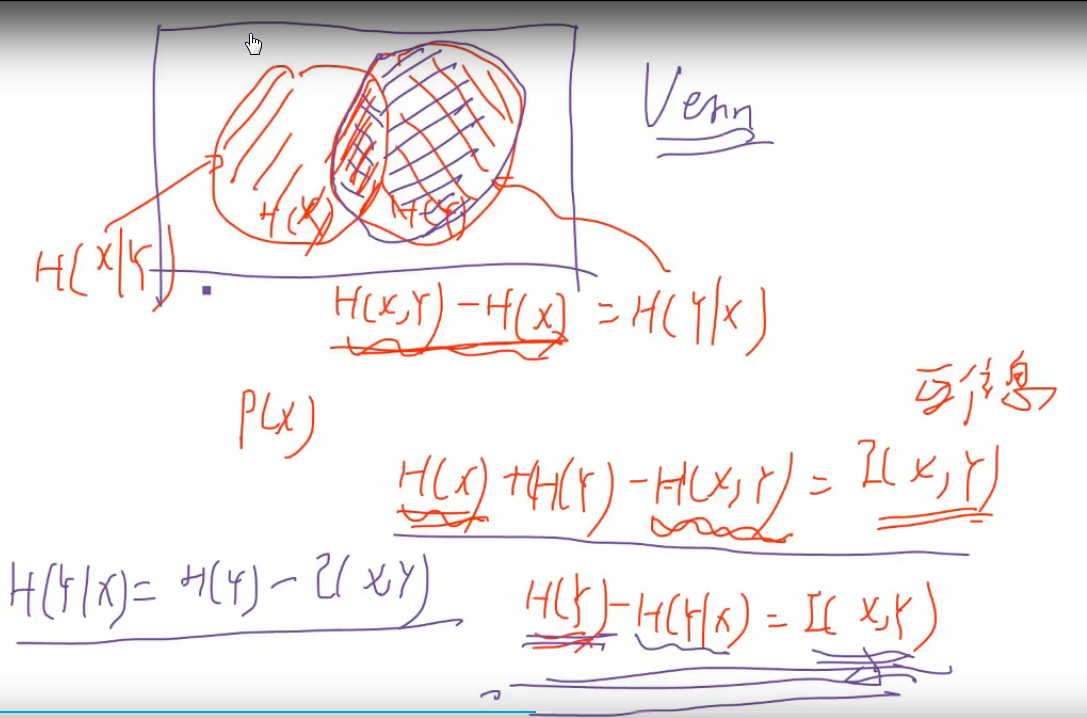 Venn
H(X) H(Y)
H(X|Y)
H(X,Y) - H(X) = H(Y|X)
互信息
P(X)
H(X) + H(Y) - H(X,Y) = I(X,Y)
H(Y|X) = H(Y) - I(X,Y)
H(Y) - H(Y|X) = I(X,Y)